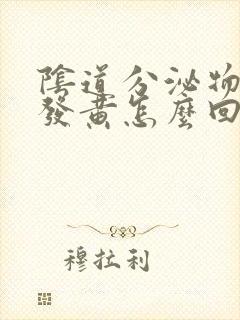 陰道分泌物
發黃怎麼回
穆拉利